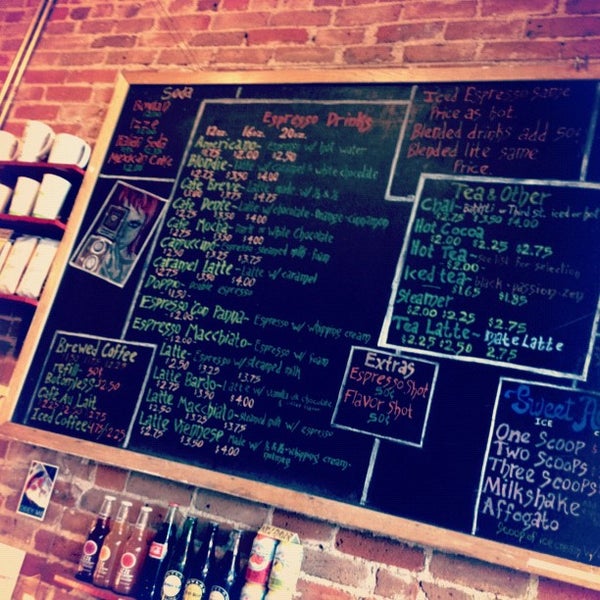 Soda
Espresso Drinks
12oz. 16oz. 20oz.
Americano- espresso w/ hot water
$2.00 $2.50
Blondie-
& white chocolate
Cafe Breve- Latte made w/ ½ & ½
Cafe Dente- Latte w/ chocolate-orange-cinnamon
$2.75 $3.50 $4.00
Cafe Mocha- White Chocolate
$2.75 $3.50 $4.00
Cappuccino- Espresso steamed milk foam
$2.50 $3.25 $3.75
Caramel Latte- Latte w/ caramel
$2.75 $3.50 $4.00
Doppio- Double espresso
Espresso Con Panna- Espresso w/ whipping cream
$2.00
Espresso Macchiato- Espresso w/ foam
$2.00
Latte- Espresso w/ steamed milk
$2.50 $3.25 $3.75
Latte Bardo- Latte w/ vanilla &
$2.75 $3.50 $4.00
Latte Macchiato- Steamed milk w/ espresso
$2.50 $3.25 $3.75
Latte Viennese Made w/ ½ & ½-whipping cream-
nutmeg
$2.75 $3.50 $4.00
Iced Espresso same
Price as hot
Blended drinks add 50¢
Blended lite same
Price.
Tea & Other
Chai- or Third St. iced or hot
$2.75 $3.50 $4.00
Hot Cocoa
$2.00 $2.25 $2.75
Hot Tea- see list for selection
$2.00
Iced tea- black - passion-zen
$1.65 $1.85
Steamer
$2.00 $2.25 $2.75
Tea Latte- mate Latte
$2.25 $2.50 2.75
Brewed Coffee
Refill- 50¢
Bottomless- $2.50
Cafe Au Lait
Iced Coffee
Extras
Espresso Shot
50¢
Flavor Shot
50¢
Sweet
ICE
One Scoop $
Two Scoops
Three Scoops
Milkshake
Affogato
Scoop of ice cream w/